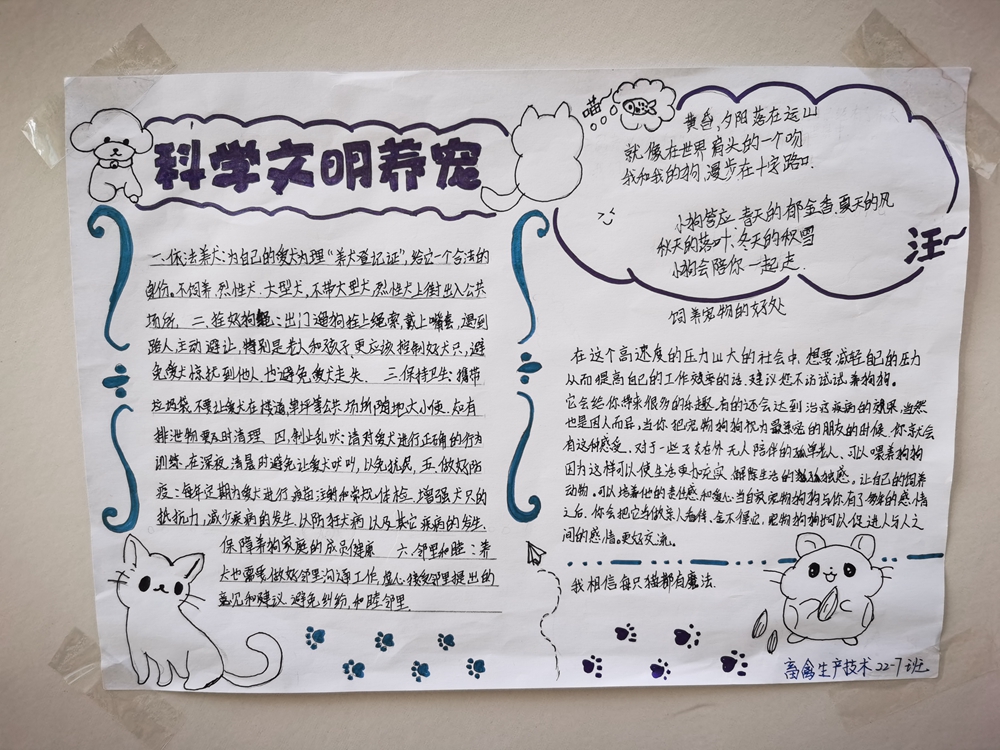 科学文明养宠
一、依法养犬：为自己的爱犬办理“养犬登记证”，给它一个合法的
身份。不饲养烈性犬、大型犬，不带大型犬烈性犬上街出入公共
场所。二、拴好狗绳：出门遛狗拴上绳索，戴上嘴套，遇到
路人主动避让，特别是老人和孩子，更应该控制好犬只，避
免爱犬惊扰到他人，也避免爱犬走失。三、保持卫生：携带
垃圾袋，不要让爱犬在楼道，草坪等公共场所随地大小便，如有
排泄物要及时清理。四，制止乱吠：请对爱犬进行正确的行为
训练，在深夜，清晨时避免让爱犬吠叫，以免扰民，五、做好防
疫：每年定期为爱犬进行疫苗注射和常规体检，增强犬只的
抵抗力，减少疾病的发生，以防狂犬病以及其它疾病的发生，
保障养狗家庭的成员健康 六、邻里和睦：养
犬也需要做好邻里沟通工作，虚心接受邻里提出的
意见和建议，避免纠纷，和睦邻里
喵
黄昏，夕阳落在远山
就像在世界肩头的一个吻
我和我的狗，漫步在十字路口.
小狗答应，春天的郁金香，夏天的风
秋天的落叶，冬天的积雪
小狗会陪你一起走.
汪~
饲养宠物的好处
在这个高速度的压力山大的社会中，想要减轻自己的压力
从而提高自己的工作效率的话，建议您不访试试养狗狗。
它会给你带来很多的乐趣，有的还会达到治疗疾病的效果，当然
也是因人而异，当你把宠物狗狗视为最亲密的朋友的时候，你就会
有这种感受。对于一些子女在外无人陪伴的孤单老人，可以喂养狗狗
因为这样可以使生活更加充实，解除生活的孤独感。让自己的饲养
动物，可以培养他的责任感和爱心，当自家宠物狗狗与你有了的感情
之后，你会把它当做亲人看待，舍不得它，宠物狗狗可以促进人与人之
间的感情。更好交流。
我相信每只猫都有魔法.
畜禽生产技术22-7班